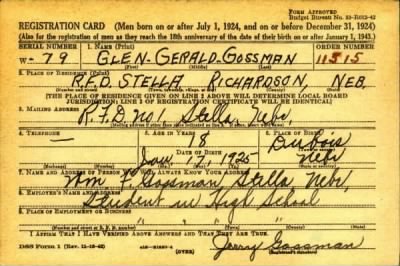 FORM APPROVED
REGISTRATION CARD (Men born on or after July 1, 1924, and on or before December 31, 1924)
(Also for the registration of men as they reach the 18th anniversary of the date of their birth on or after January 1, 1943.)
SERIAL NUMBER 1. NAME ORDER NUMBER
W-79 GLEN-GERALD-GOSSMAN 11515
(First) (Middle) (Last)
2. PLACE OF RESIDENCE
R.F.D. STELLA RICHARDSON, NEB.
[THE PLACE OF RESIDENCE GIVEN ON LINE 2 ABOVE WILL DETERMINE LOCAL BOARD
JURISDICTION; LINE 2 OF REGISTRATION CERTIFICATE WILL BE IDENTICAL]
3. MAILING ADDRESS
R.F.D. No 1. Stella, Nebr.
4. TELEPHONE 5. AGE IN YEARS 6. PLACE OF BIRTH
— 18 DuBois
DATE OF BIRTH
Jan. 17, 1925 Nebr
7. NAME AND ADDRESS OF PERSON WHO WILL ALWAYS KNOW YOUR ADDRESS
Wm. F. Gossman, Stella, Nebr,
8. EMPLOYER'S NAME AND ADDRESS
Student in High School
9. PLACE OF EMPLOYMENT OR BUSINESS
" " " "
I AFFIRM THAT I HAVE VERIFIED ABOVE ANSWERS AND THAT THEY ARE TRUE.
DSS Form 1 (OVER) Jerry Gossman